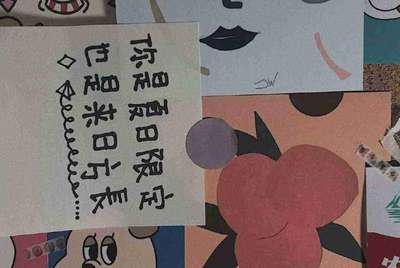 你是夏日限定
也是来日方長
JW